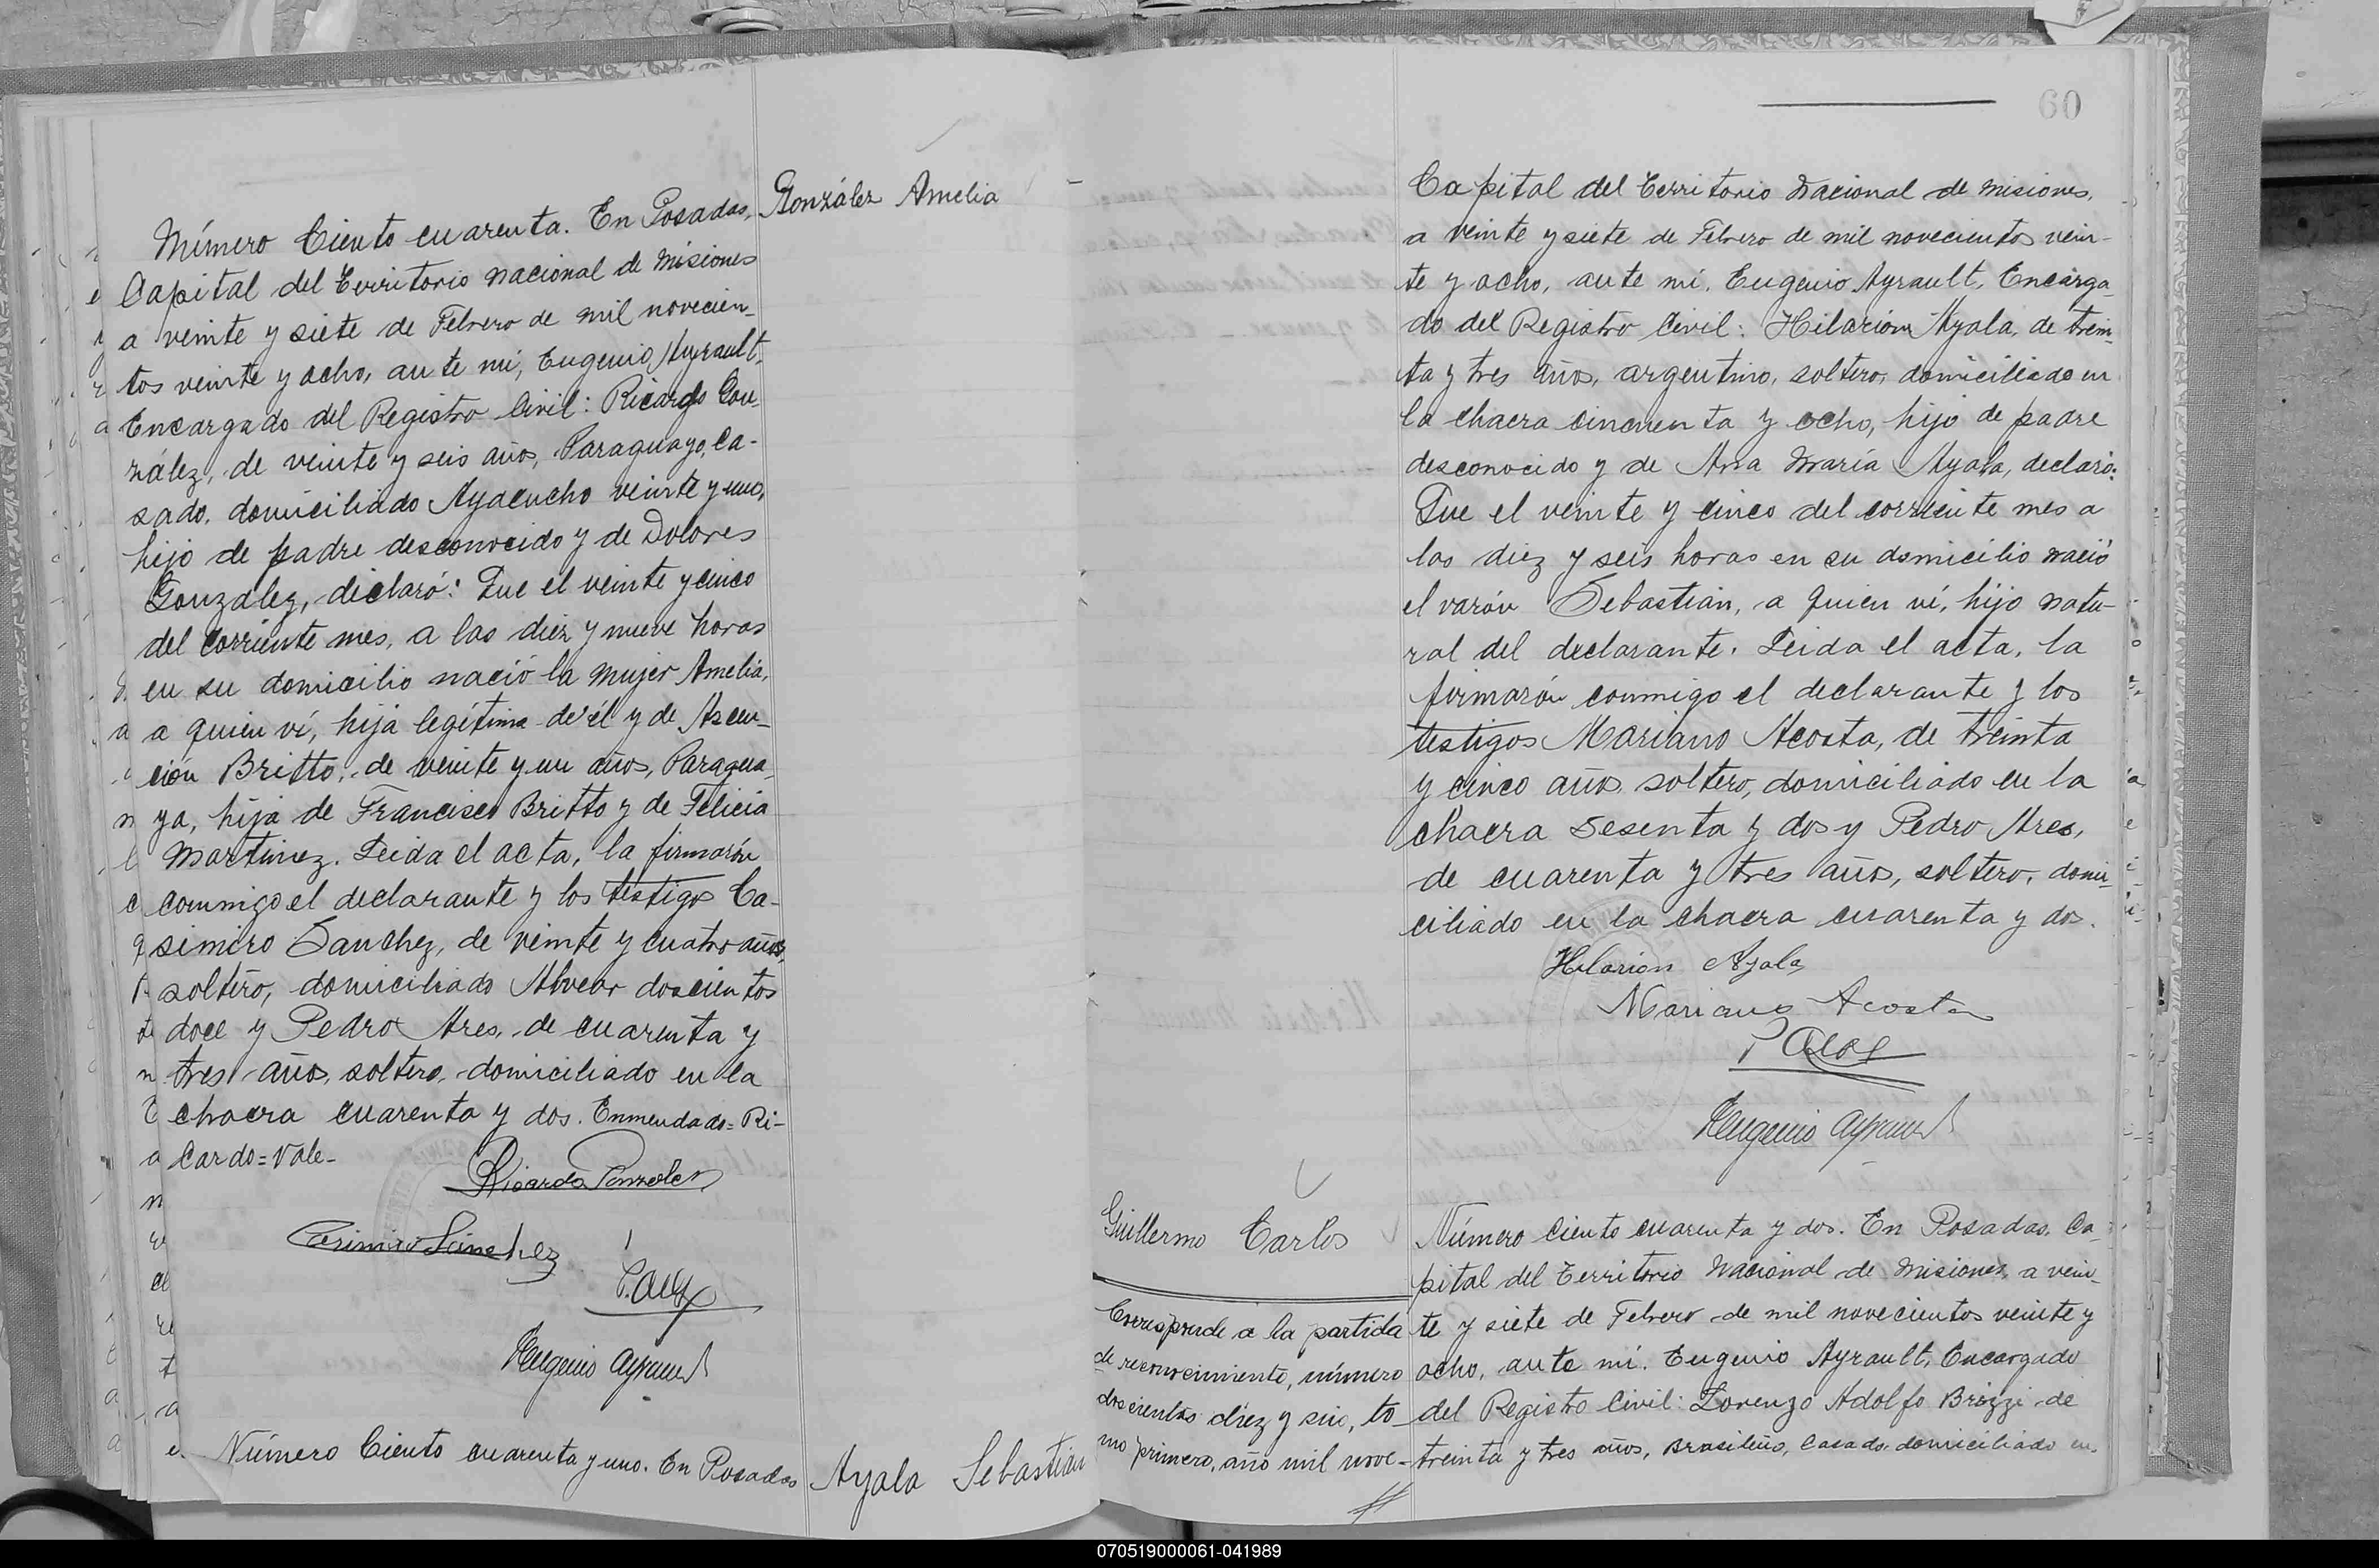 González Amelia
Número Ciento cuarenta. En Posadas,
Capital del Territorio Nacional de Misiones
a veinte y siete de Febrero de mil novecien-
tos veinte y ocho, ante mi, Eugenio Ayrault,
Encargado del Registro Civil: Ricardo Gon-
zález, de veinte y seis años, Paraguayo, ca-
sado, domiciliado Ayacucho veinte y uno,
hijo de padre desconocido y de Dolores
González, declaró: Que el veinte y cinco
del corriente mes, a las diez y nueve horas
en su domicilio nació la mujer Amelia,
a quien ví, hija legítima de él y de Ascen-
ción Britto, de veinte y un años, Paragua-
ya, hija de Francisco Britto y de Felicia
Martinez. Leida el acta, la firmarón
conmigo el declarante y los testigos Ca-
simiro Sanchez, de veinte y cuatro años,
soltero, domiciliado Alvear doscientos
doce y Pedro Ares, de cuarenta y
tres años, soltero, domiciliado en la
chacra cuarenta y dos. Enmendado=Ri-
cardo=Vale-
Ricardo Gonzalez
Casimiro Sanchez
P. Ares
Eugenio Ayrault
Número Ciento cuarenta y uno. En Posadas
Ayala Sebastian
60
Capital del Territorio Nacional de Misiones,
a veinte y siete de Febrero de mil novecientos vein-
te y ocho, ante mi, Eugenio Ayrault, Encarga-
do del Registro Civil: Hilarión Ayala, de trein-
ta y tres años, argentino, soltero, domiciliado en
la chacra cincuenta y ocho, hijo de padre
desconocido y de Ana María Ayala, declaró:
Que el veinte y cinco del corriente mes a
las diez y seis horas en su domicilio nació
el varón Sebastián, a quien ví, hijo natu-
ral del declarante. Leida el acta, la
firmarón conmigo el declarante y los
testigos Mariano Acosta, de treinta
y cinco años, soltero, domiciliado en la
chacra sesenta y dos y Pedro Ares,
de cuarenta y tres años, soltero, domi-
ciliado en la chacra cuarenta y dos.
Hilarion Ayala
Mariano Acosta
P Ares
Eugenio Ayrault
Guillermo Carlos
Corresponde a la partida
de reconocimiento, número
doscientos diez y seis, to-
mo primero, año mil nove-
Número Ciento cuarenta y dos. En Posadas, Ca-
pital del Territorio Nacional de Misiones, a vein-
te y siete de Febrero de mil novecientos veinte y
ocho, ante mi, Eugenio Ayrault, Encargado
del Registro Civil: Lorenzo Adolfo Brizzi de
treinta y tres años, Brasileño, casado, domiciliado en
070519000061-041989